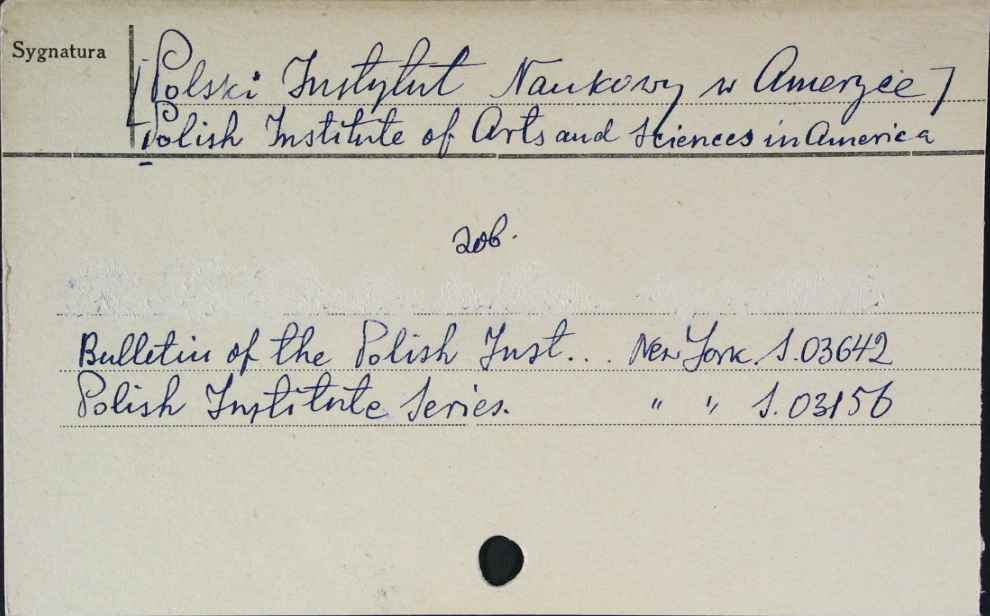 Sygnatura
[Polski Instytut Naukowy w Ameryce]
Polish Institute of Arts and Sciences in America
zob.
Bulletin of the Polish Inst... New York S.03642
Polish Institute Series. " " S.03156